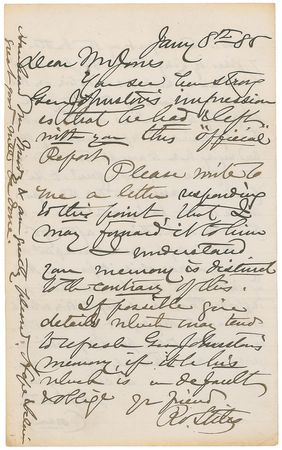 Jany 8th 88
Dear Mr Jones
You see how strong
Gen Johnston's impression
is that he had & left
with you this "official"
Report
Please write to
me a letter responding
to this point, that I
may forward it to him
I understand
your memory is distinct
to the contrary of this.
If possible give
details which may tend
to refresh Gen Johnston's
memory, if it be his
which is in default
& oblige yr friend
Ro. Stiles
& am greatly pleased. Hope & believe
great good will be done.